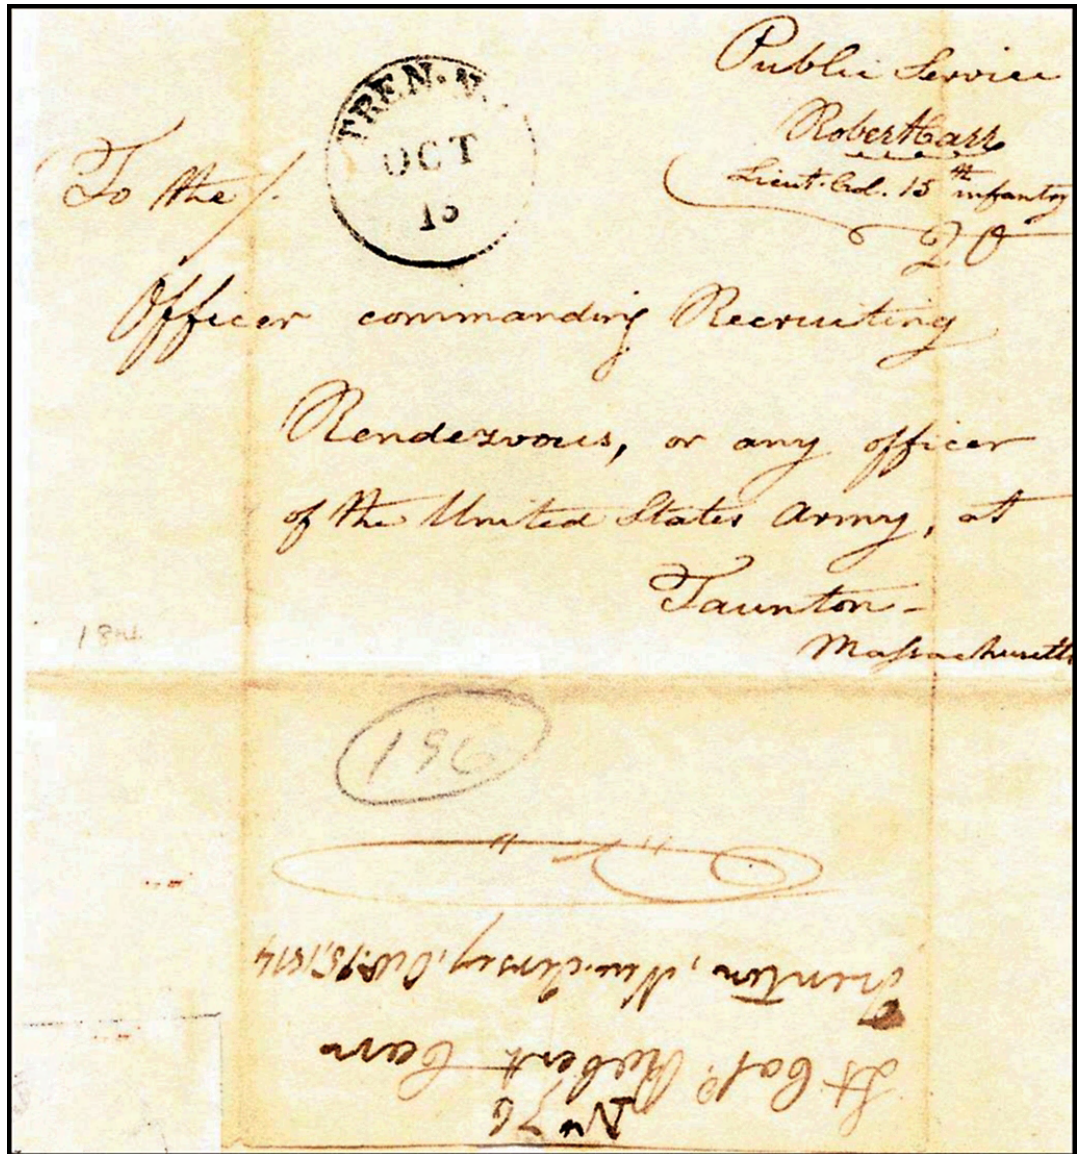 Public Service
Robert Carr
Lieut. Col. 15th infantry
20
TREN. N.
OCT
15
To the
Officer commanding Recruiting
Rendezvous, or any officer
of the United States Army, at
Taunton-
Massachusetts
196
No 76
Lt Col. Robert Carr
Trenton, New Jersey, Oct. 15, 1814